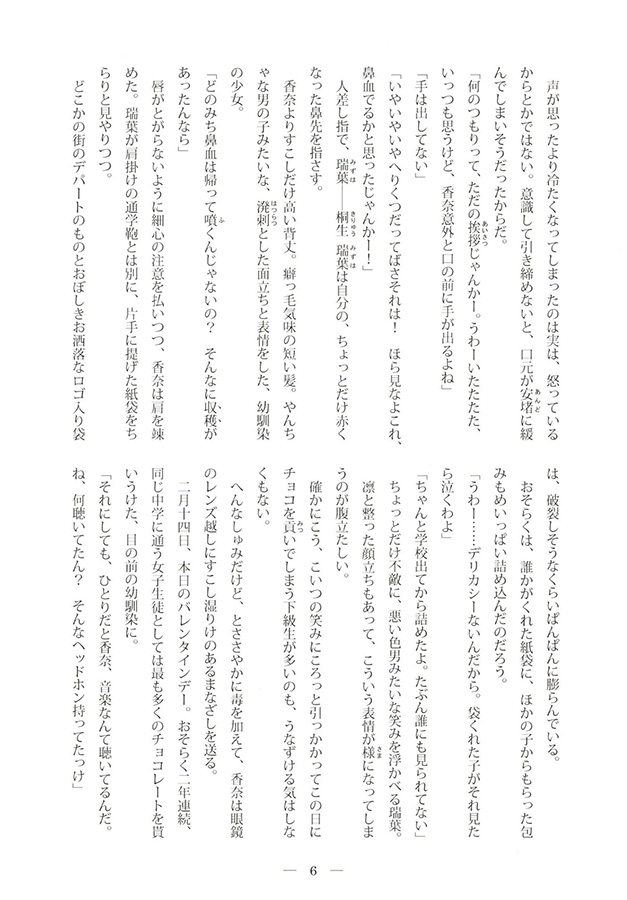 声が思ったより冷たくなってしまったのは実は、怒っている
からとかではない。意識して引き締めないと、口元が安堵に緩
んでしまいそうだったからだ。
「何のつもりって、ただの挨拶じゃんかー。うわーいたたたた、
いっつも思うけど、香奈意外と口の前に手が出るよね」
「手は出してない」
「いやいやいやへりくつだってばさそれは！　ほら見なよこれ、
鼻血でるかと思ったじゃんかー！」
人差し指で、瑞葉――桐生 瑞葉は自分の、ちょっとだけ赤く
なった鼻先を指さす。
香奈よりすこしだけ高い背丈。癖っ毛気味の短い髪。やんち
ゃな男の子みたいな、溌剌とした面立ちと表情をした、幼馴染
の少女。
「どのみち鼻血は帰って噴くんじゃないの？　そんなに収穫が
あったんなら」
唇がとがらないように細心の注意を払いつつ、香奈は肩を竦
めた。瑞葉が肩掛けの通学鞄とは別に、片手に提げた紙袋をち
らりと見やりつつ。
どこかの街のデパートのものとおぼしきお洒落なロゴ入り袋
は、破裂しそうなくらいぱんぱんに膨らんでいる。
おそらくは、誰かがくれた紙袋に、ほかの子からもらった包
みもめいっぱい詰め込んだのだろう。
「うわー……デリカシーないんだから。袋くれた子がそれ見た
ら泣くわよ」
「ちゃんと学校出てから詰めたよ。たぶん誰にも見られてない」
ちょっとだけ不敵に、悪い色男みたいな笑みを浮かべる瑞葉。
凛と整った顔立ちもあって、こういう表情が様になってしま
うのが腹立たしい。
確かにこう、こいつの笑みにころっと引っかかってこの日に
チョコを貢いでしまう下級生が多いのも、うなずける気はしな
くもない。
へんなしゅみだけど、とささやかに毒を加えて、香奈は眼鏡
のレンズ越しにすこし湿りけのあるまなざしを送る。
二月十四日、本日のバレンタインデー。おそらく二年連続、
同じ中学に通う女子生徒としては最も多くのチョコレートを貰
いうけた、目の前の幼馴染に。
「それにしても、ひとりだと香奈、音楽なんて聴いてるんだ。
ね、何聴いてたん？　そんなヘッドホン持ってたっけ」
― 6 ―